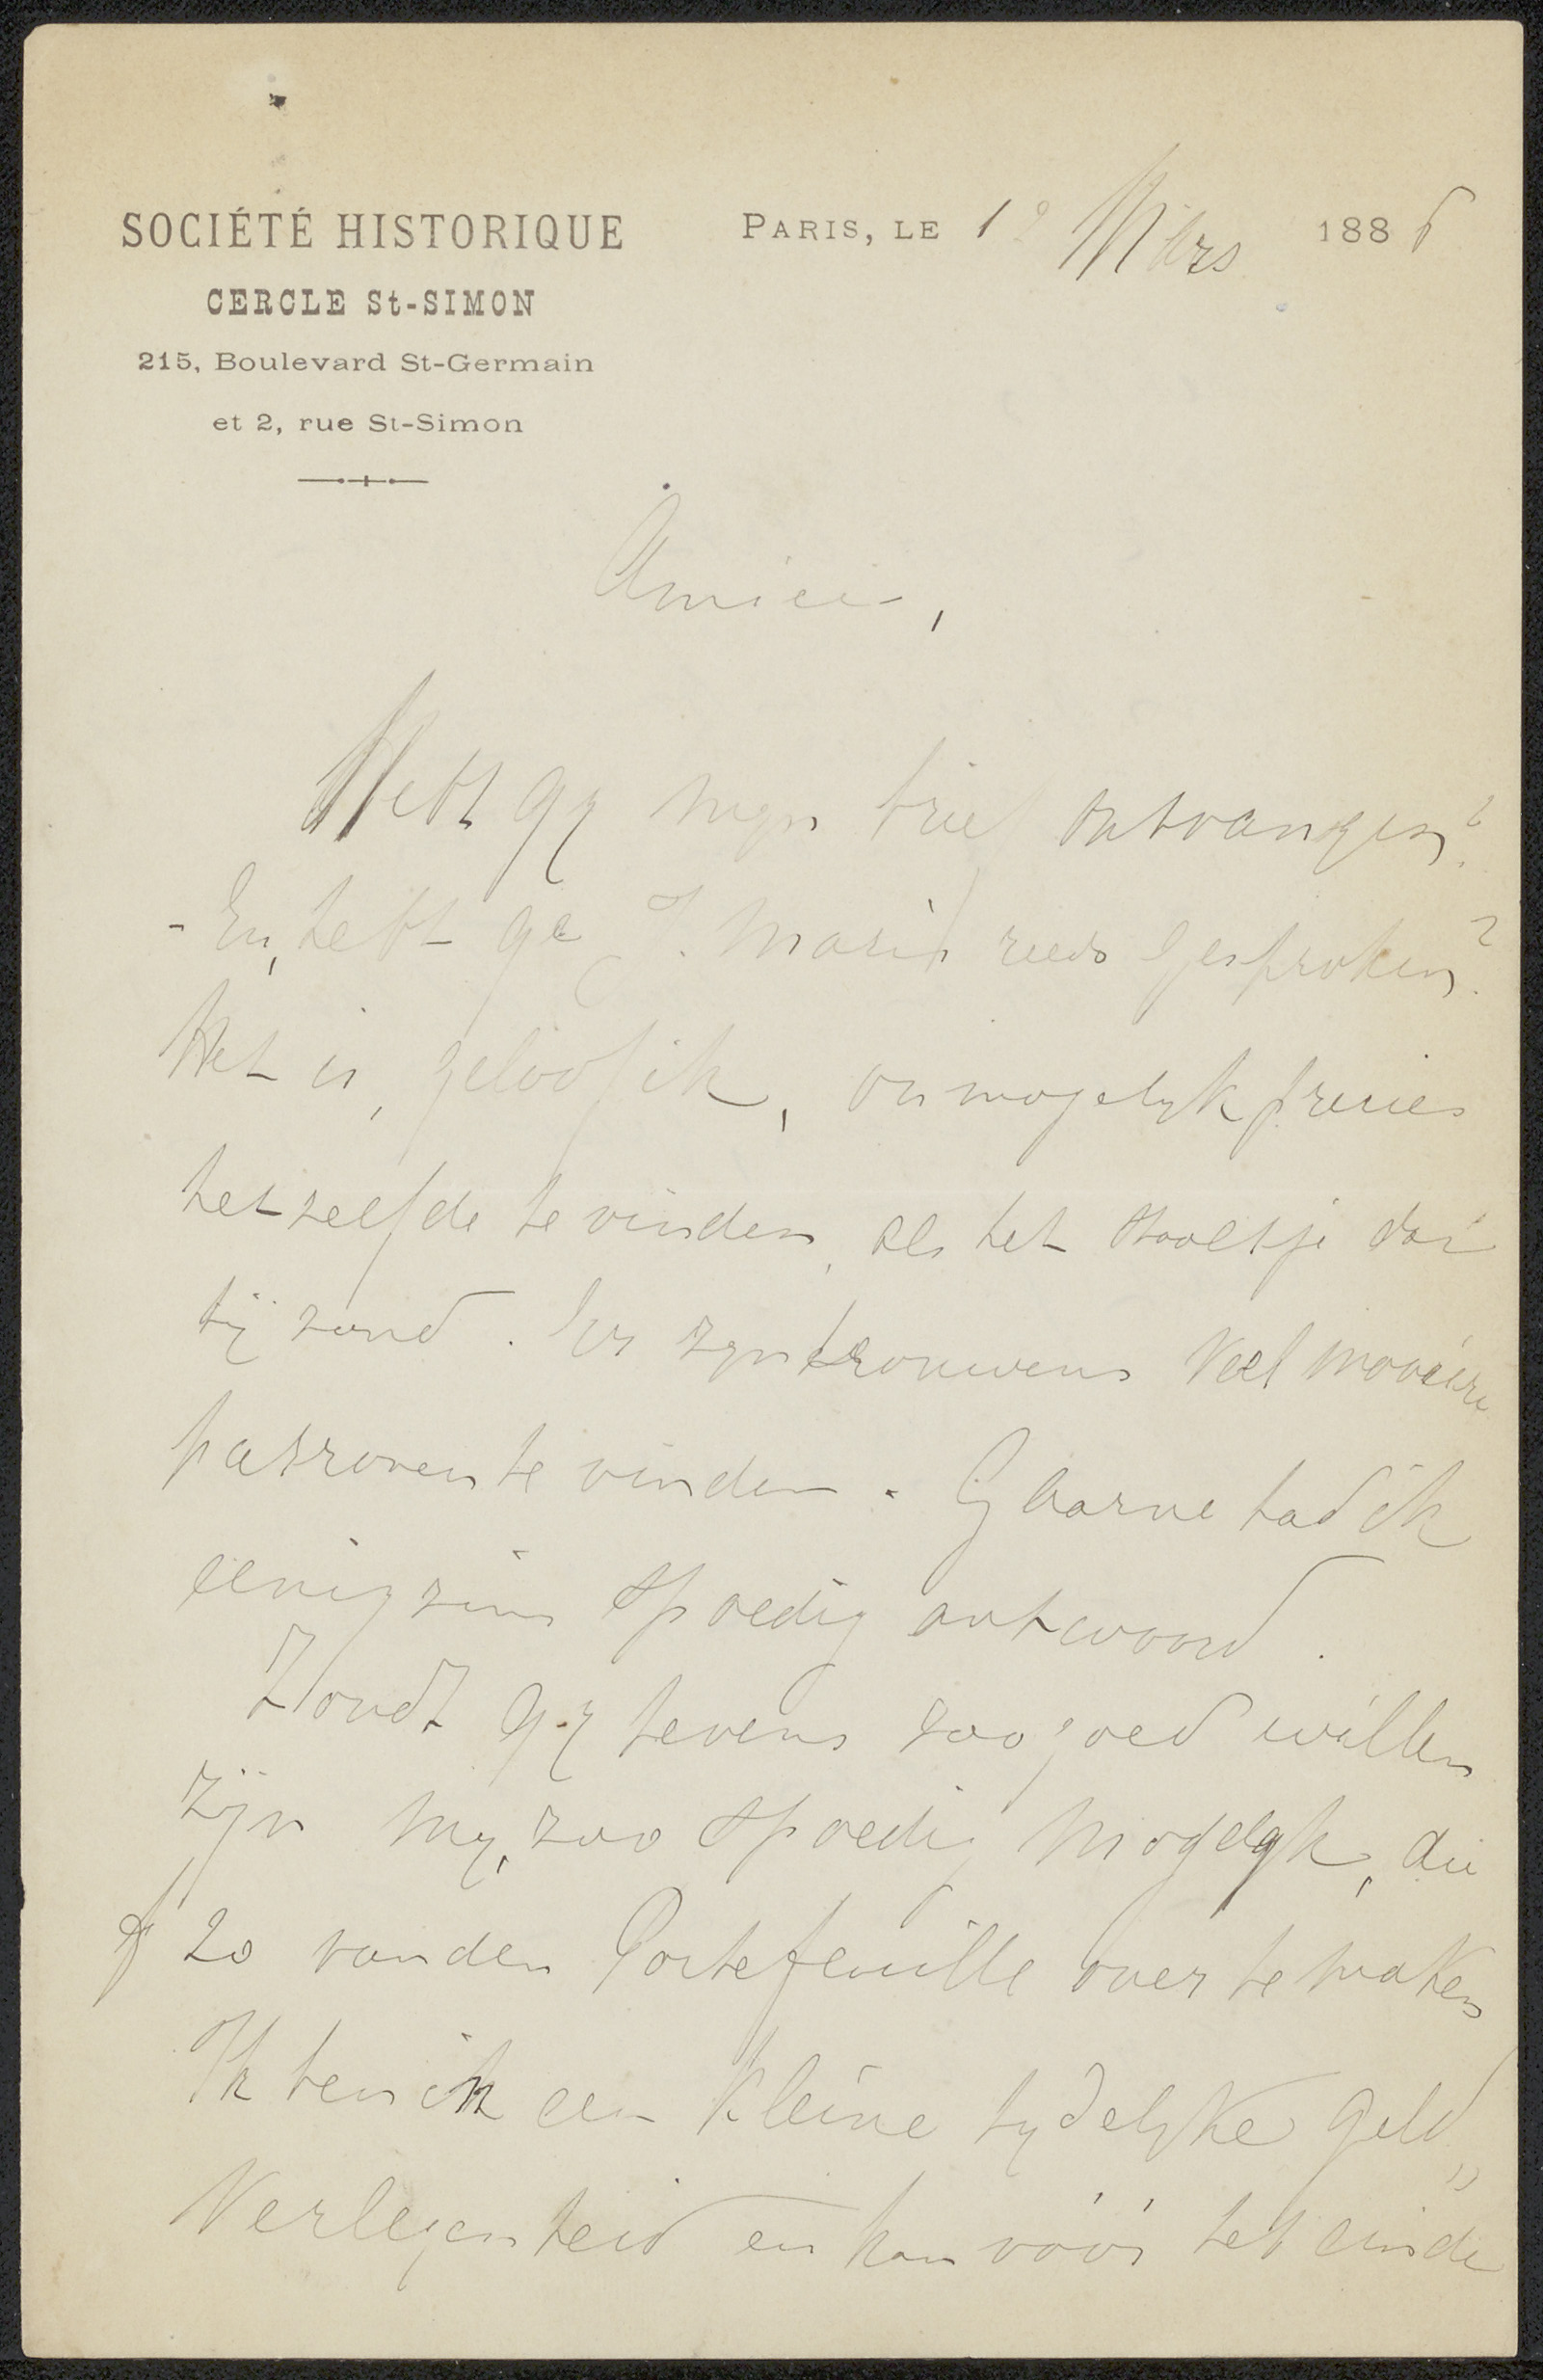 SOCIÉTÉ HISTORIQUE
CERCLE St-SIMON
215, Boulevard St-Germain
et 2, rue St-Simon
PARIS, LE 12 Mars 1886
Amice,
Hebt gy mijn brief ontvangen?
- En, hebt ge J. Maris reeds gesproken?
Het is, geloof ik, onmogelyk precies
hetzelfde te vinden, als het staaltje dat
bij zond. Er zyn trouwens veel mooiere
patronen te vinden. Gaarne had ik
eenigzins spoedig antwoord.
Zoudt gy tevens zoo goed willen
zijn my, zoo spoedig mogelyk, die
f 20 van den Portefeuille over te maken
Ik ben in een kleine tydelyke geld„
verlegenheid en kan vóór het einde